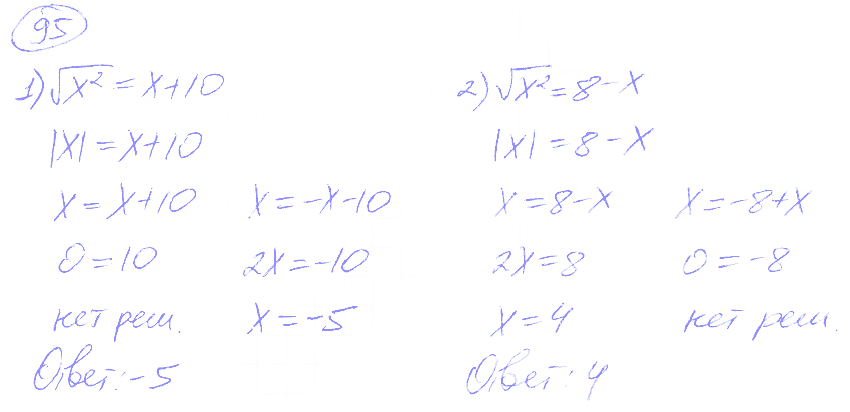 95
1) √x² = x+10
|x| = x+10
x = x+10 x = -x-10
0 = 10 2x = -10
нет реш. x = -5
Ответ: -5
2) √x² = 8-x
|x| = 8-x
x = 8-x x = -8+x
2x = 8 0 = -8
x = 4 нет реш.
Ответ: 4